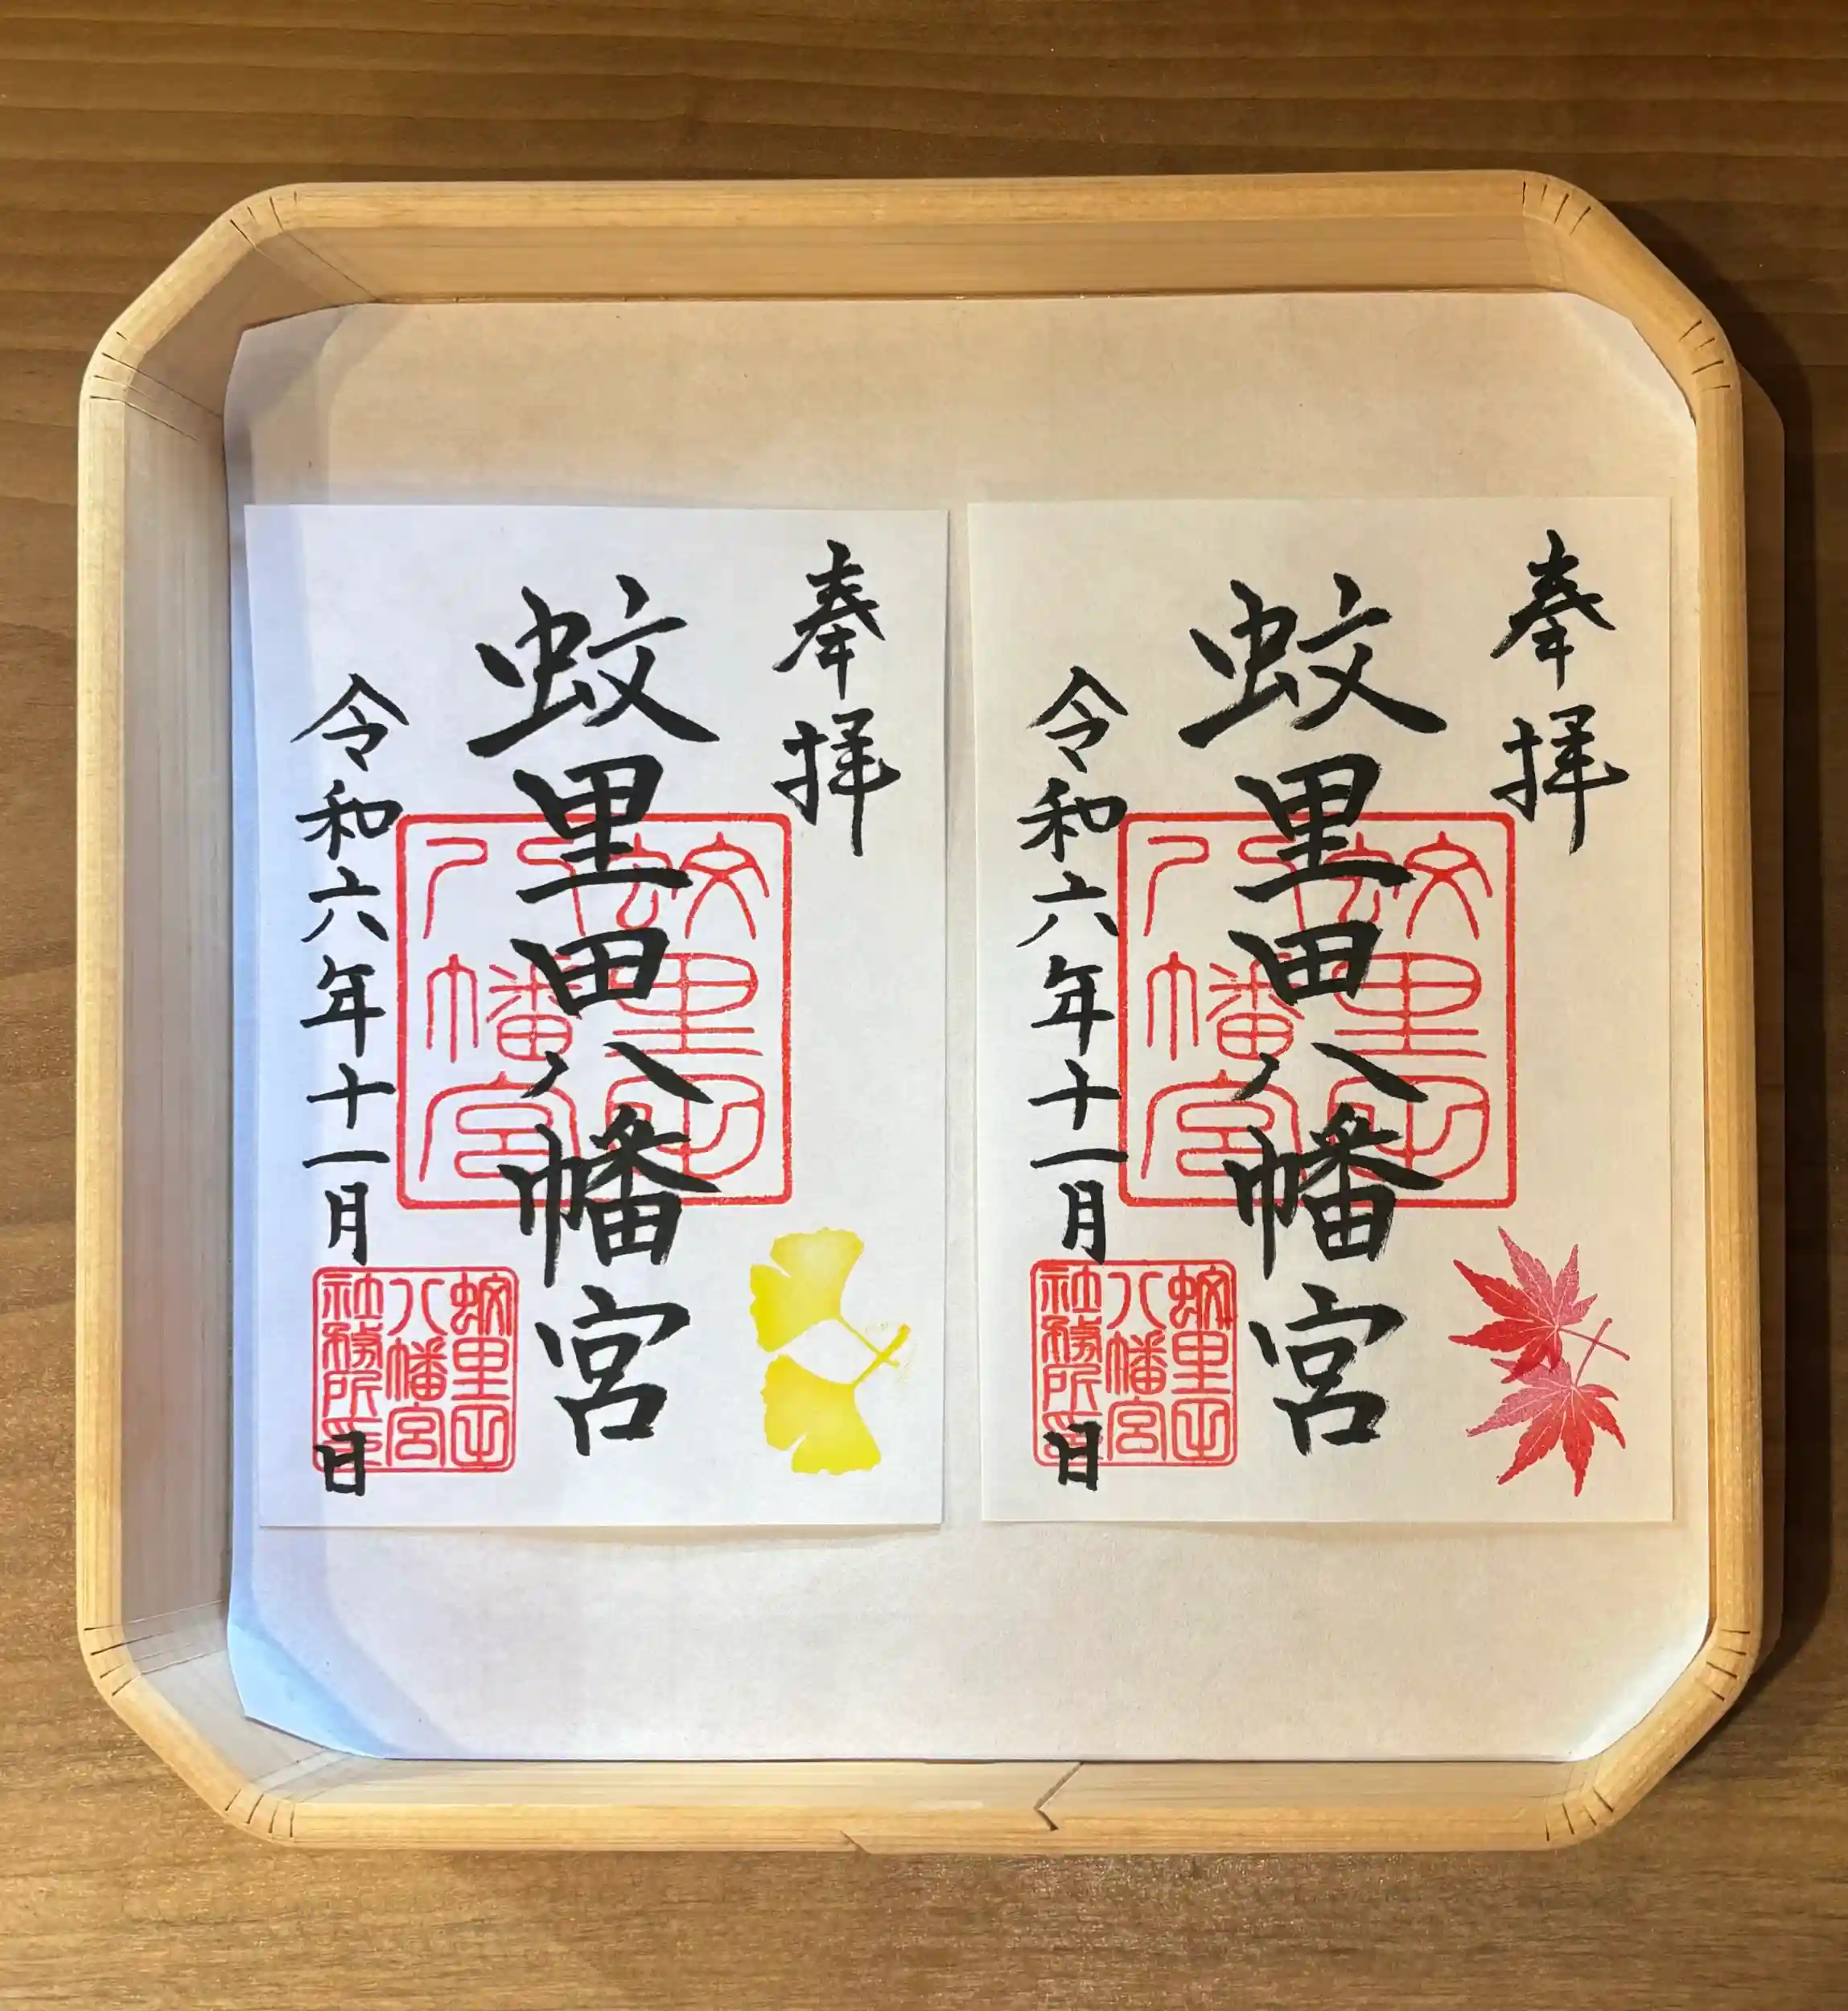 奉拝
蚊里田八幡宮
蚊里田
八幡宮
令和六年十一月 日
蚊里田
八幡宮
社務所印
奉拝
蚊里田八幡宮
蚊里田
八幡宮
令和六年十一月 日
蚊里田
八幡宮
社務所印